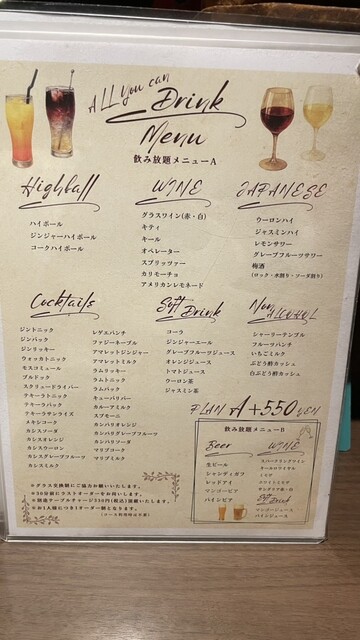 ALL you can
Drink
Menu
飲み放題メニューA
Highball
ハイボール
ジンジャーハイボール
コークハイボール
WINE
グラスワイン(赤・白)
キティ
キール
オペレーター
スプリッツァー
カリモーチョ
アメリカンレモネード
JAPANESE
ウーロンハイ
ジャスミンハイ
レモンサワー
グレープフルーツサワー
梅酒
(ロック・水割り・ソーダ割り)
Cocktails
ジントニック
ジンバック
ジンリッキー
ウォッカトニック
モスコミュール
ブルドック
スクリュードライバー
テキーラトニック
テキーラバック
テキーラサンライズ
メキシコーク
カシスソーダ
カシスオレンジ
カシスウーロン
カシスグレープフルーツ
カシスミルク
レゲエパンチ
ファジーネーブル
アマレットジンジャー
アマレットミルク
ラムリッキー
ラムトニック
ラムバック
キューバリバー
カルーアミルク
スプモーニ
カンパリオレンジ
カンパリグレープフルーツ
カンパリソーダ
マリブコーク
マリブミルク
Soft Drink
コーラ
ジンジャーエール
グレープフルーツジュース
オレンジジュース
トマトジュース
ウーロン茶
ジャスミン茶
Non ALCOHOL
シャーリーテンプル
フルーツパンチ
いちごミルク
ぶどう酢カッシュ
白ぶどう酢カッシュ
PLAN A +550 YEN
飲み放題メニューB
Beer
生ビール
シャンディガフ
レッドアイ
マンゴービア
パインビア
WINE
スパークリングワイン
ミモザ
Soft Drink
マンゴージュース
パインジュース
※グラス交換制にご協力お願いいたします。
※30分前にラストオーダーをお伺いします。
※別途テーブルチャージ330円(税込)頂戴いたします。
※お1人様につき1オーダー制となります。